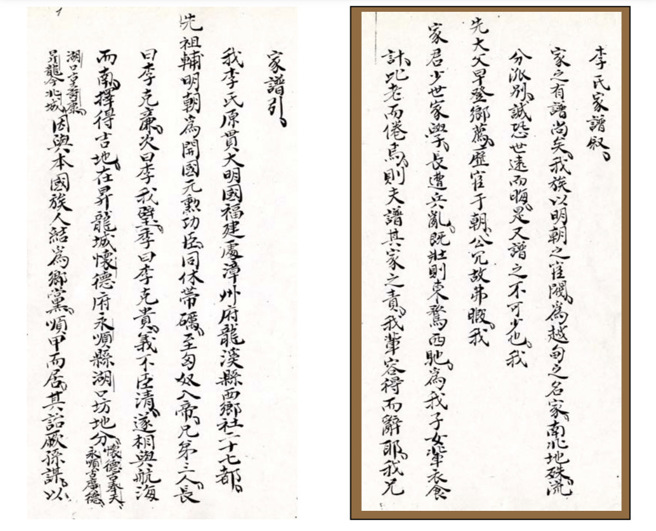 李氏家譜叙
家之有譜尚矣我族以明朝之宦閥為越甸之名家南北地殊流
分派別誠恐世遠而晦是又譜之不可少也我
先大父早登鄉薦歷官于朝公冗故弗暇我
家君少世家學長遭兵亂既壯則東騖西馳為我子女輩衣食
計比老而倦焉則夫譜其家之責我輩容得而辭耶我兄
家譜引
我李氏原貫大明國福建處漳州府龍溪縣西鄉社二十七都
先祖輔明朝為開國元勲功臣同休帶礪至匈奴入帝兄弟三人長
曰李克廉次曰李我璧季曰李克貴義不臣清遂相與航海
而南擇得吉地在昇龍城懷德府永順縣湖口坊地分懷德古奉天永順古廣德
湖口皇哥氣昇龍今北城因與本國族人結為鄉黨順甲而居其詒厥孫謀以